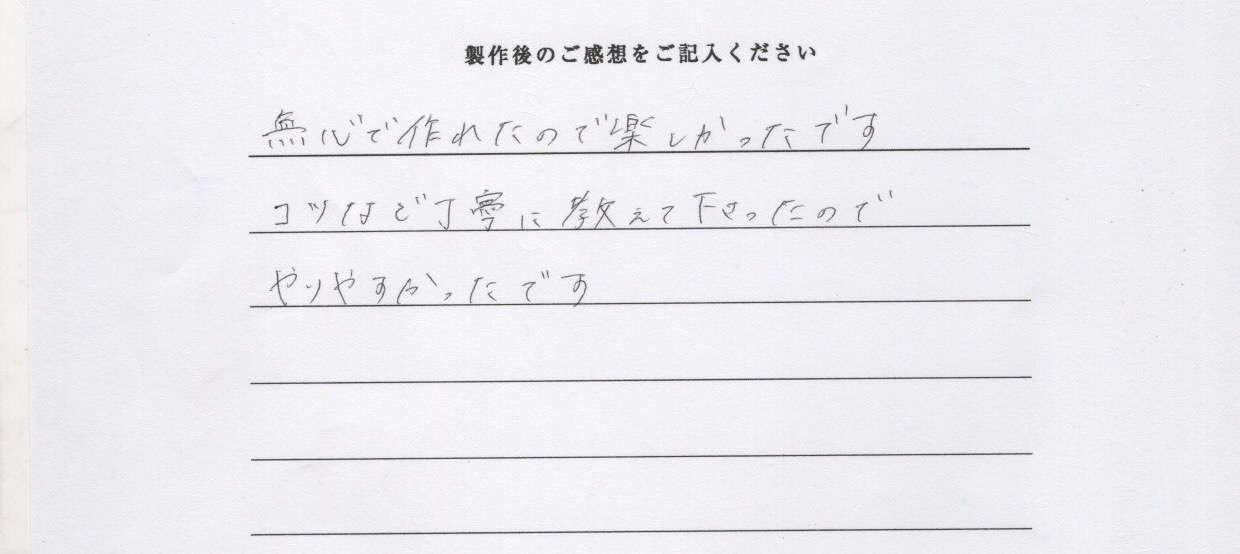 製作後のご感想をご記入ください
無心で作れたので楽しかったです
コツなど丁寧に教えて下さったので
やりやすかったです